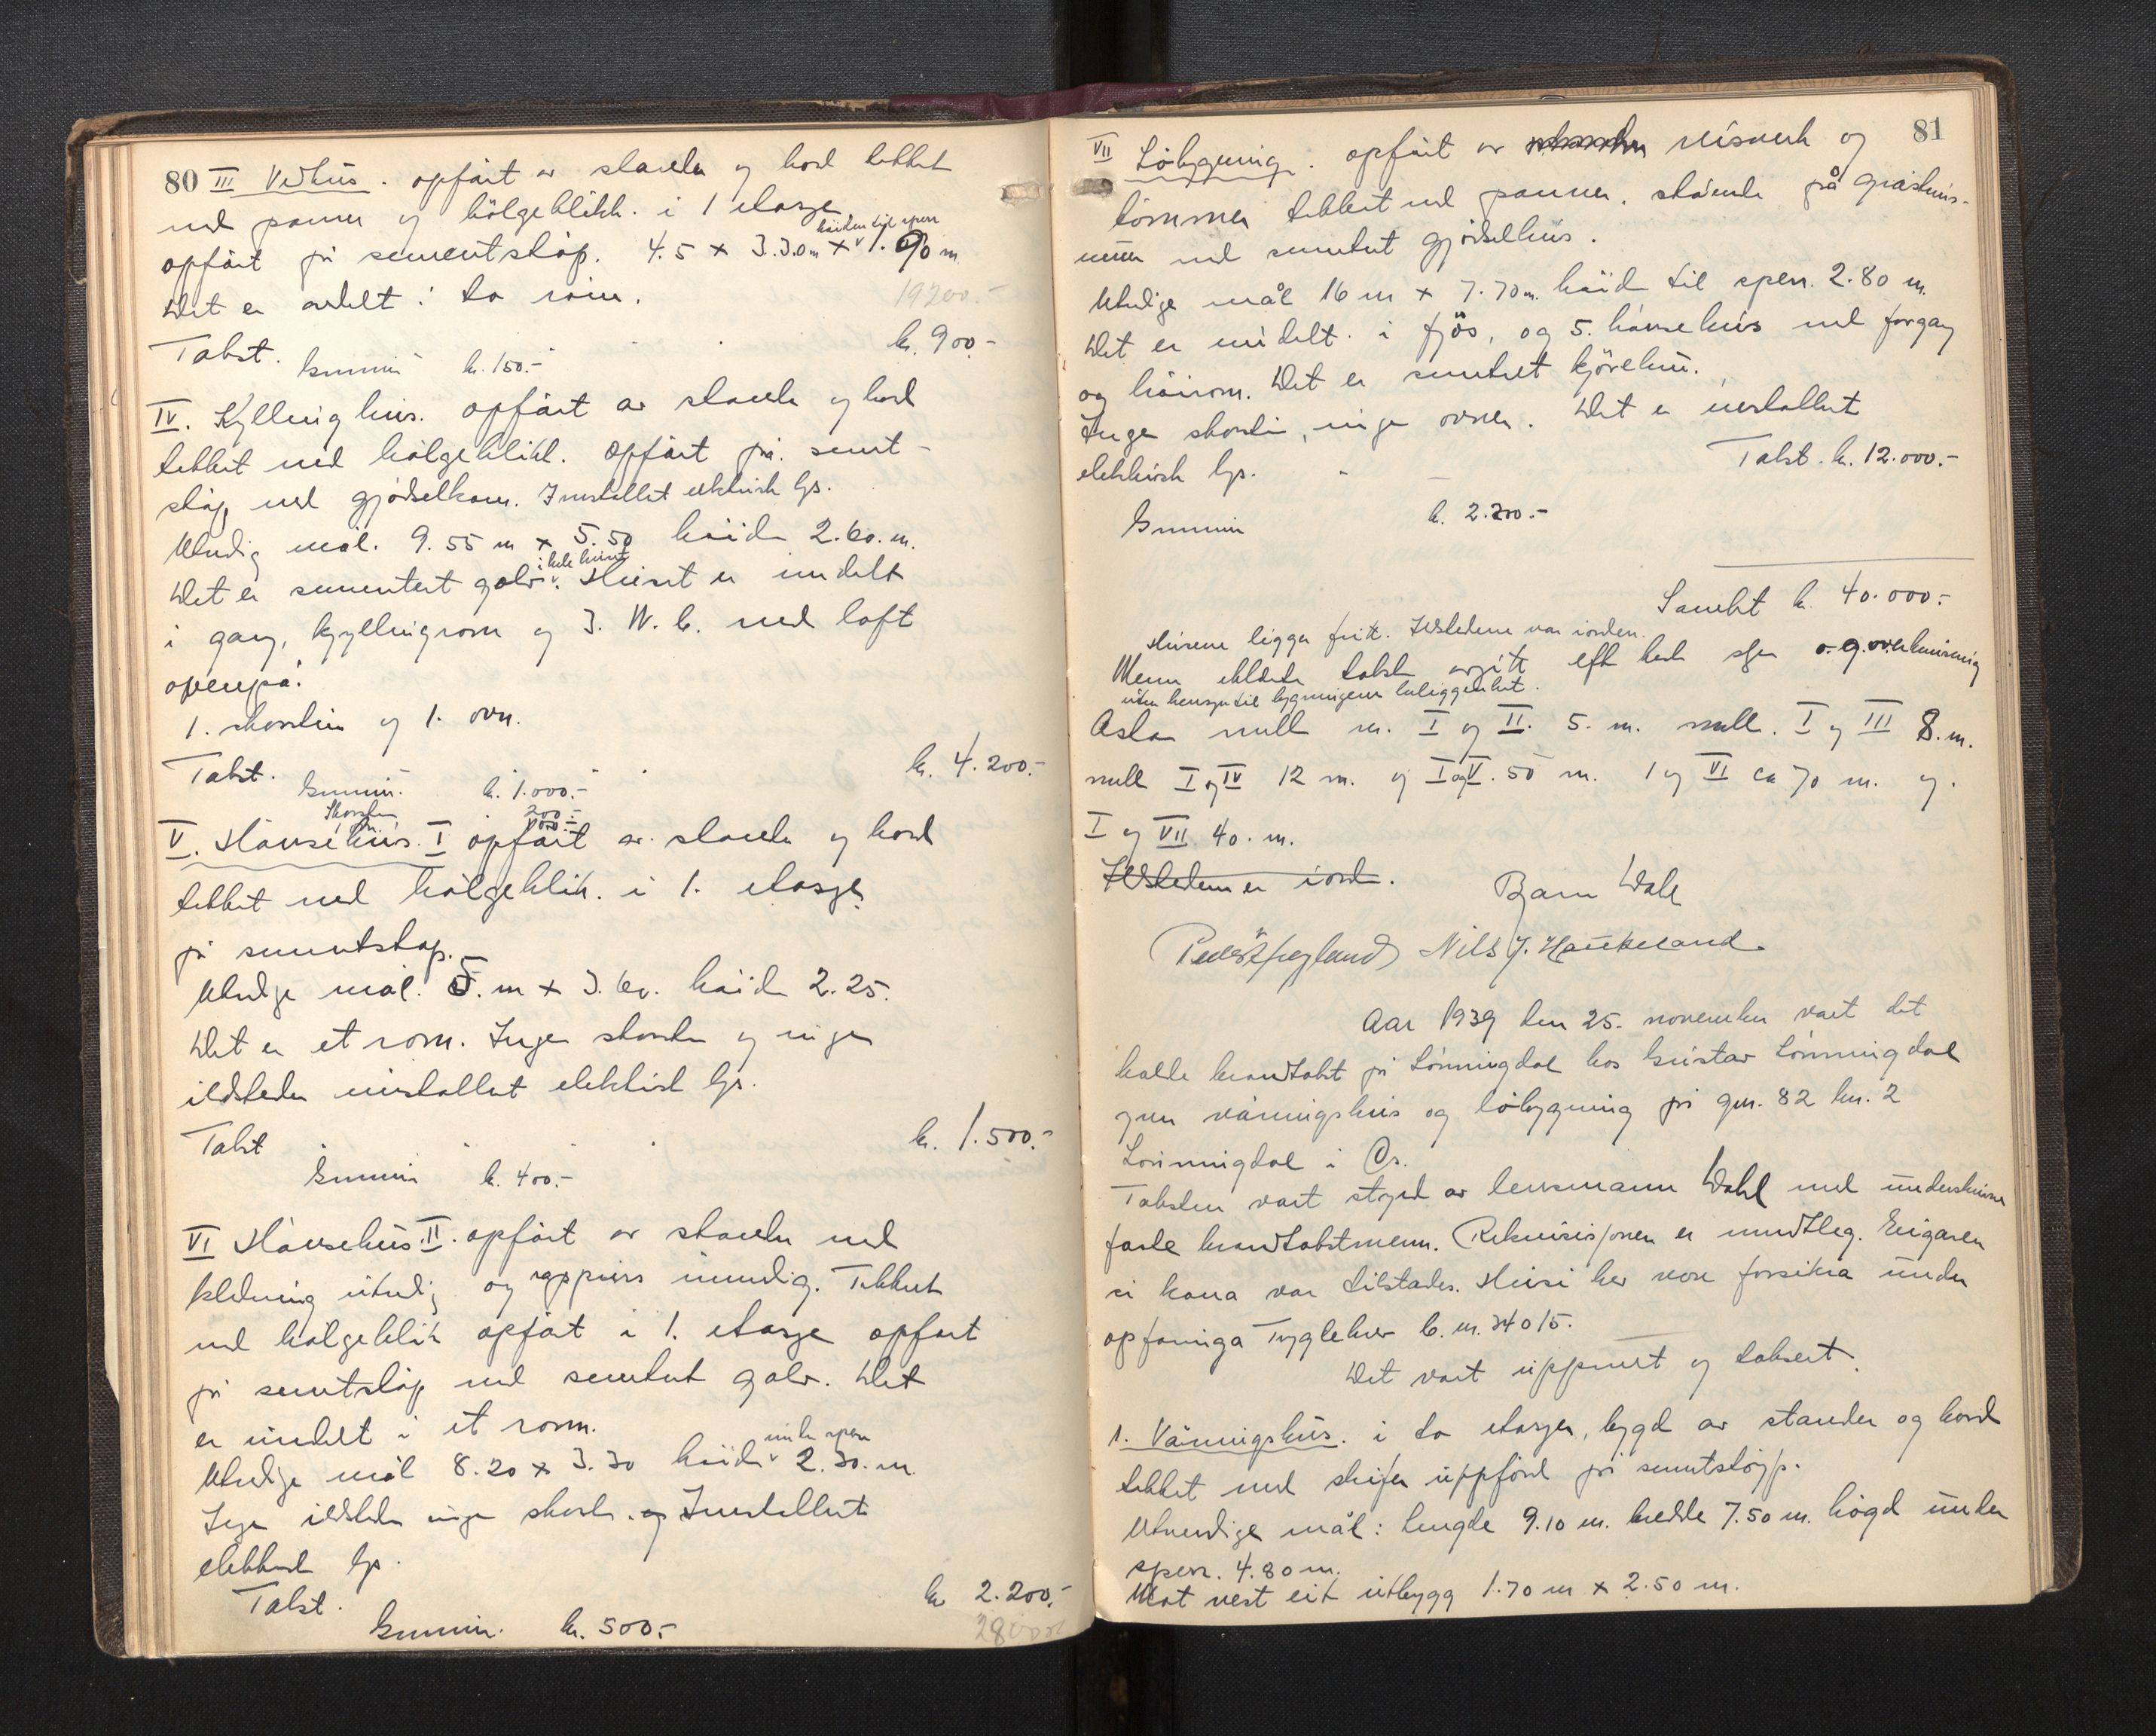 80 III Vedhus. opfört av stander og bord tekket
med panner og bölgeblikk. i 1 etasje
höiden til sperr
opfört på sementstöp. 4.5 x 3.30m x 1.90 m
Det er avdelt i to rom. 19200.-
Takst. kr. 900.-
Grunnmur kr. 150.-
IV. Kyllinghus. opfört av stander og bord
tekket med bölgeblikk. Opfört på sement-
stöp med gjödselkom. Innstallert elektrisk lys.
Utvendig mål. 9.55 m x 5.50 höide 2.60. m.
i hele huset
Det er sementert golv. Huset er inndelt
i gang, kyllingrom og 3. W.C. med loft
ovenpå.
1. skorstein og 1. ovn.
Takst. kr. 4.200.-
Grunnmur. kr. 1.000.-
Skorstein 200.-
V. Hönsehus. I opfört av stander og bord
tekket med bölgeblikk. i 1. etasje
på sementstöp.
Utvendige mål. 5. m x 3.60. höide 2.25.
Det er et rom. Ingen skorstein og ingen
ildsteder innstallert elektrisk lys.
Takst kr. 1.500.-
Grunnmur kr. 400.-
VI Hönsehus. II. opfört av stander med
kledning utvendig og innvendig. Tekket
med bölgeblik opfört i 1. etasje opfört
på sementstöp med sementert golv. Det
er inndelt i et rom.
under sperr
Utvendige mål 8.20 x 3.30 höide 2.30. m.
Ingen ildsteder ingen skorst. og Innstallert
elektrisk lys.
Takst. kr 2.200.-
Grunnmur. kr. 500.-
81
VII Löbygning. opfört av reisverk og
tömmer tekket med panner. stående på gråsteins-
mur med sementert gjödselhus.
Utvendige mål 16 m x 7.70 m. höid til sperr. 2.80 m.
Det er inndelt i fjös, og 5. hönsehus med forgang
og höirom. Det er sementert kjörebru.
Ingen skorstein, ingen ovner. Det er innstallert
elektrisk lys. Takst. kr. 12.000.-
Grunnmur kr. 2.200.-
Samlet kr. 40.000.-
Husene ligger fritt. Ildstedene var i orden.
Menn erklærte takst avgitt efter beste skjön o.g. overbevisning
uten hensyn til bygningens beliggenhet.
Avstan mell nr. I og II. 5. m. mell. I og III 8. m.
mell I og IV 12 m. og I og V. 50 m. I og VI ca 70 m. og
I og VII 40. m.
Ildstedene er i ord.
Bjarn Dahl
Nils J. Haukeland
Aar 1939 den 25. november vart det
halde brandtakst på Lönningdal hos Gustav Lönningdal
yver våningshus og löbygning på gnr. 82 bnr. 2
Lönningdal i Os.
Taksten vart styrd av lensmann Dahl med underskrivne
faste brandtakstmenn. Rekvisisjonen er mundtleg. Eigaren
si kona var tilstades. Husi her vore forsikra under
opfornga Trygdebrev C. nr. 34015.
Det vart uppmelt og taksert.
1. Våningshus. i to etasjer, bygd av stander og bord
tekket med skifer uppförd på sementstöyp.
Utvendige mål: Lengde 9.10 m. bredde 7.50 m. högd under
sperr. 4.80 m.
Mot vest eit utbygg 1.70 m x 2.50 m.